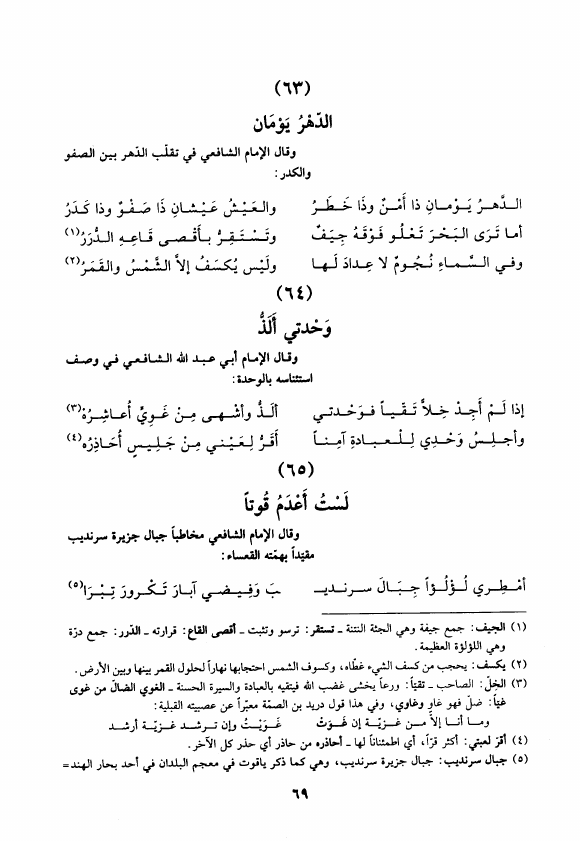 (٦٣)
الدّهْرُ يَوْمَان
وقال الإمام الشافعي في تقلّب الدّهر بين الصفو
والكدر:
الـدَّهـرُ يَـوْمـانِ ذا أَمْـنٌ وذَا خَـطَـرُ والعَيْـشُ عَيْشـانِ ذَا صَـفْـوٌ وذا كَـدَرُ
أما تَرَى البَحْرَ تَعْلُو فَوْقَهُ جِيَفٌ وتَـسْـتَـقِـرُّ بـأقْـصـى قَـاعِـهِ الـدُّرَرُ(١)
وفـي الـسَّـمـاءِ نُـجُـومٌ لا عِـدادَ لَـهـا ولَيْس يُكسَفُ إلاَّ الشَّمْسُ والقَمَرُ(٢)
(٦٤)
وَحْدتي أَلَذُّ
وقـال الإمام أبـي عـبـد الله الـشـافـعـي فـي وصـف
استئناسه بالوحدة:
إذا لَـمْ أَجِـدْ خِـلاًّ تَـقـيـاً فـوَحْـدتـي ألَذُّ وأشْـهـى مِـنْ غَـوِيٍّ أُعـاشِـرُهْ(٣)
وأجلِـسُ وَحْدِي لِلْعبـادةِ آمِنـاً أقَـرُّ لِعَيْنـي مِـنْ جَـلِيـسٍ أُحَـاذِرُهْ(٤)
(٦٥)
لَسْتُ أَعْدَمُ قُوتاً
وقال الإمام الشافعي مخاطباً جبال جزيرة سرنديب
مقيّداً بهمّته القعساء:
أمْـطِـري لُـؤْلُـؤاً جِـبَـالَ سـرنـديـ ـبَ وَفِـيـضـي آبـارَ تَـكْـرورَ تِـبْـرَا(٥)
(١) الجيف: جمع جيفة وهي الجثة النتنة ـ تستقر: ترسو وتثبت ـ أقصى القاع: قرارته ـ الدّرر: جمع درّة
وهي اللؤلؤة العظيمة.
(٢) يكسف: يحجب من كسف الشيء غطّاه، وكسوف الشمس احتجابها نهاراً لحلول القمر بينها وبين الأرض.
(٣) الخِلّ: الصاحب ـ تقيّاً: ورعاً يخشى غضب الله فيتقيه بالعبادة والسيرة الحسنة ـ الغوي الضالّ من غوى
غيّاً: ضلّ فهو غاوٍ وغاوي، وفي هذا قول دريد بن الصمّة معبّراً عن عصبيته القبلية:
ومـا أنـا إلاَّ مـن غـزيّـة إن غَـوَتْ غَـوَيْـتُ وإن تـرشـد غـزيّـة أرشـد
(٤) أقرّ لعيني: أكثر قرّاً، أي اطمئناناً لها ـ أحاذره من حاذر أي حذر كل الآخر.
(٥) جبال سرنديب: جبال جزيرة سرنديب، وهي كما ذكر ياقوت في معجم البلدان في أحد بحار الهند=
٦٩